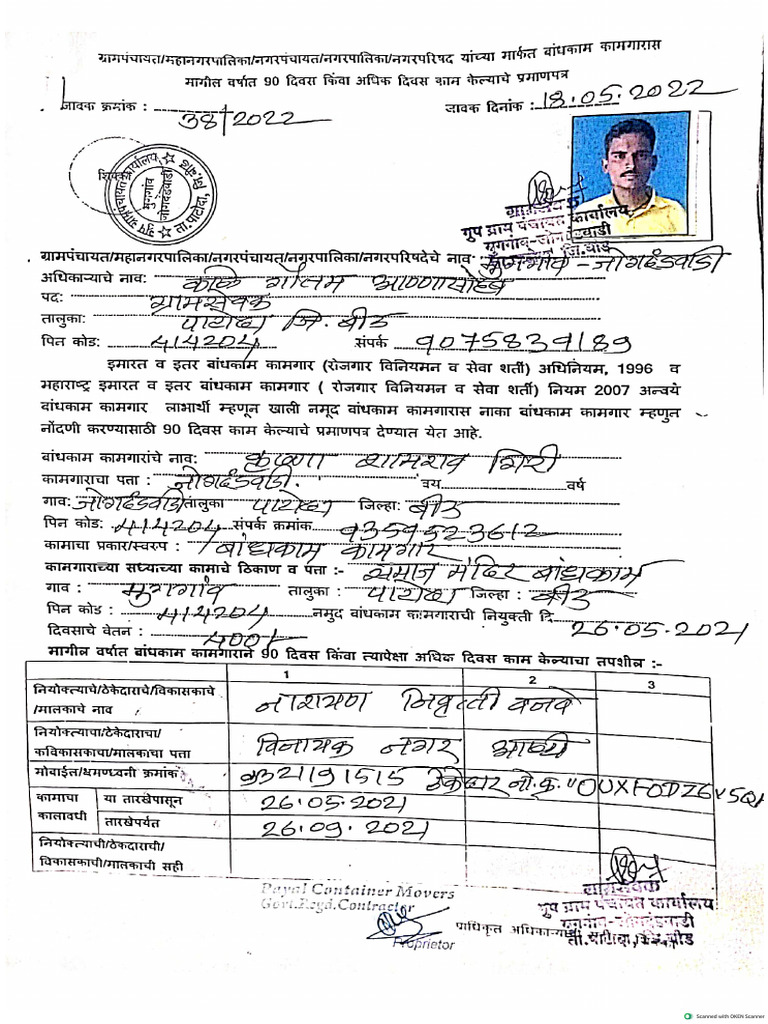 ग्रामपंचायत/महानगरपालिका/नगरपंचायत/नगरपालिका/नगरपरिषद यांच्या मार्फत बांधकाम कामगारास
मागील वर्षात 90 दिवस किंवा अधिक दिवस काम केल्याचे प्रमाणपत्र
जावक क्रमांक : 38/2022 जावक दिनांक : 18.05.2022
शिक्का
ग्रामसेवक
ग्रुप ग्राम पंचायत कार्यालय
मुगगांव-जोगदंडवाडी
ग्रामपंचायत/महानगरपालिका/नगरपंचायत/नगरपालिका/नगरपरिषदेचे नाव: मुगगांव - जोगदंडवाडी
अधिकाऱ्याचे नाव: गौतम आण्णासाहेब
पद: ग्रामसेवक
तालुका: पाटोदा जि. बीड
पिन कोड: 414204 संपर्क 9075839189
इमारत व इतर बांधकाम कामगार (रोजगार विनियमन व सेवा शर्ती) अधिनियम, 1996 व
महाराष्ट्र इमारत व इतर बांधकाम कामगार ( रोजगार विनियमन व सेवा शर्ती) नियम 2007 अन्वये
बांधकाम कामगार लाभार्थी म्हणून खाली नमूद बांधकाम कामगारास नाका बांधकाम कामगार म्हणुन
नोंदणी करण्यासाठी 90 दिवस काम केल्याचे प्रमाणपत्र देण्यात येत आहे.
बांधकाम कामगारांचे नाव: कृष्णा शामराव गिरी
कामगाराचा पत्ता : जोगदंडवाडी. वय वर्ष
गाव: जोगदंडवाडी तालुका पाटोदा जिल्हा: बीड
पिन कोड: 414204 संपर्क क्रमांक 9359523612
कामाचा प्रकार/स्वरुप : बांधकाम कामगार
कामगाराच्या सध्याच्या कामाचे ठिकाण व पत्ता :- समाज मंदिर बांधकाम
गाव : मुगगांव तालुका : पाटोदा जिल्हा : बीड
पिन कोड : 414204 नमुद बांधकाम कामगाराची नियुक्ती दि 26.05.2021
दिवसाचे वेतन : 400/-
मागील वर्षात बांधकाम कामगाराने 90 दिवस किंवा त्यापेक्षा अधिक दिवस काम केल्याचा तपशील :-
1 2 3
नियोक्त्याचे/ठेकेदाराचे/विकासकाचे
/मालकाचे नाव नारायण निवृत्ती वनवे
नियोक्त्याचा/ठेकेदाराचा/
कविकासकाचा/मालकाचा पत्ता विनायक नगर आष्टी
मोबाईल/भ्रमणध्वनी क्रमांक 9321191515 ठेकेदार नो.क्र.
कामाचा या तारखेपासून 26.05.2021
कालावधी तारखेपर्यंत 26.09.2021
नियोक्त्याची/ठेकेदाराची/
विकासकाची/मालकाची सही
Payal Container Movers
Govt.Regd.Contractor
Proprietor
ग्रामसेवक
ग्रुप ग्राम पंचायत कार्यालय
मुगगांव-जोगदंडवाडी
ता.पाटोदा, जि.बीड
Scanned with OKEN Scanner